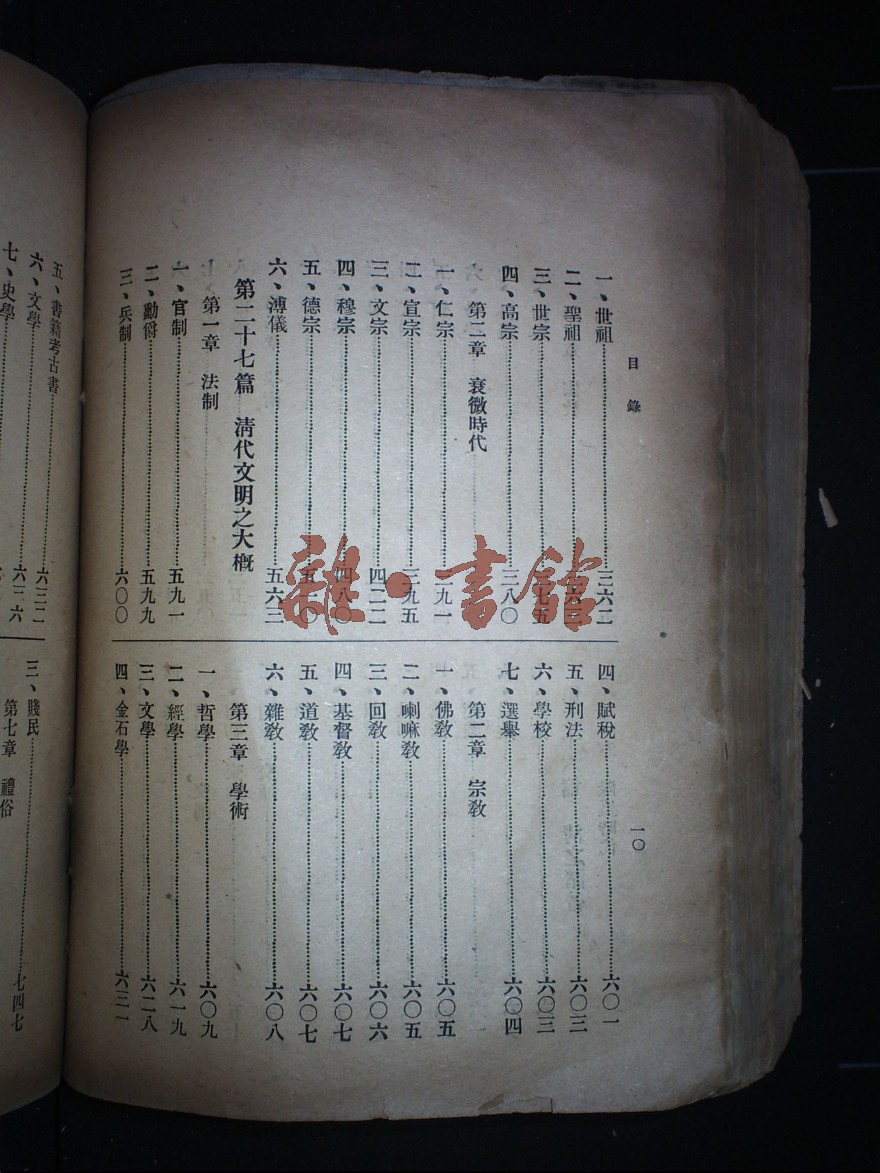 目錄
一〇
一、世祖 三六二
二、聖祖
三、世宗
四、高宗 三八〇
第二章 衰微時代
一、仁宗 三九一
二、宣宗 三九五
三、文宗 四二二
四、穆宗 四八〇
五、德宗
六、溥儀 五六三
第二十七篇 淸代文明之大槪
第一章 法制
一、官制 五九一
二、勳爵 五九九
三、兵制 六〇〇
四、賦稅 六〇一
五、刑法 六〇三
六、學校 六〇三
七、選舉 六〇四
第二章 宗敎
一、佛敎 六〇五
二、喇嘛敎 六〇五
三、回敎 六〇六
四、基督敎 六〇七
五、道敎 六〇七
六、雜敎 六〇八
第三章 學術
一、哲學 六〇九
二、經學 六一九
三、文學 六二八
四、金石學 六三一
五、書籍考古書 六三二
六、文學 六三六
七、史學
三、賤民 七四七
第七章 禮俗
雜·書館